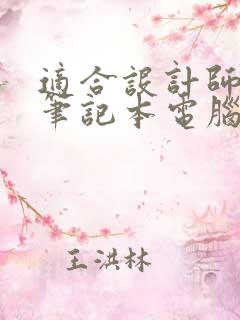 適合設計師
筆記本電腦
王洪林